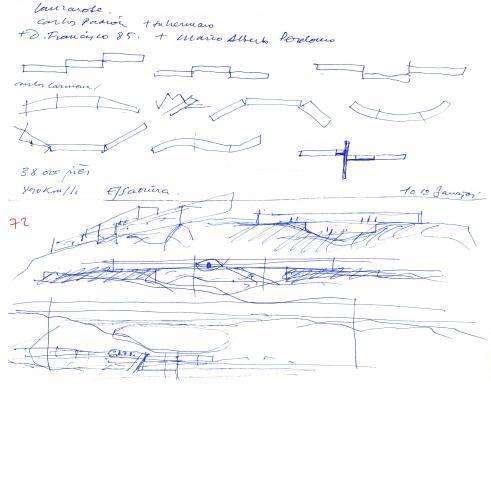 Lanzarote.
Carlos Padrón + su hermano
+ D. Francisco 85. + Marco Alberto Perdomo
Carlos Carmona /
38 000 piés
890 Km/h Essaouira.
72